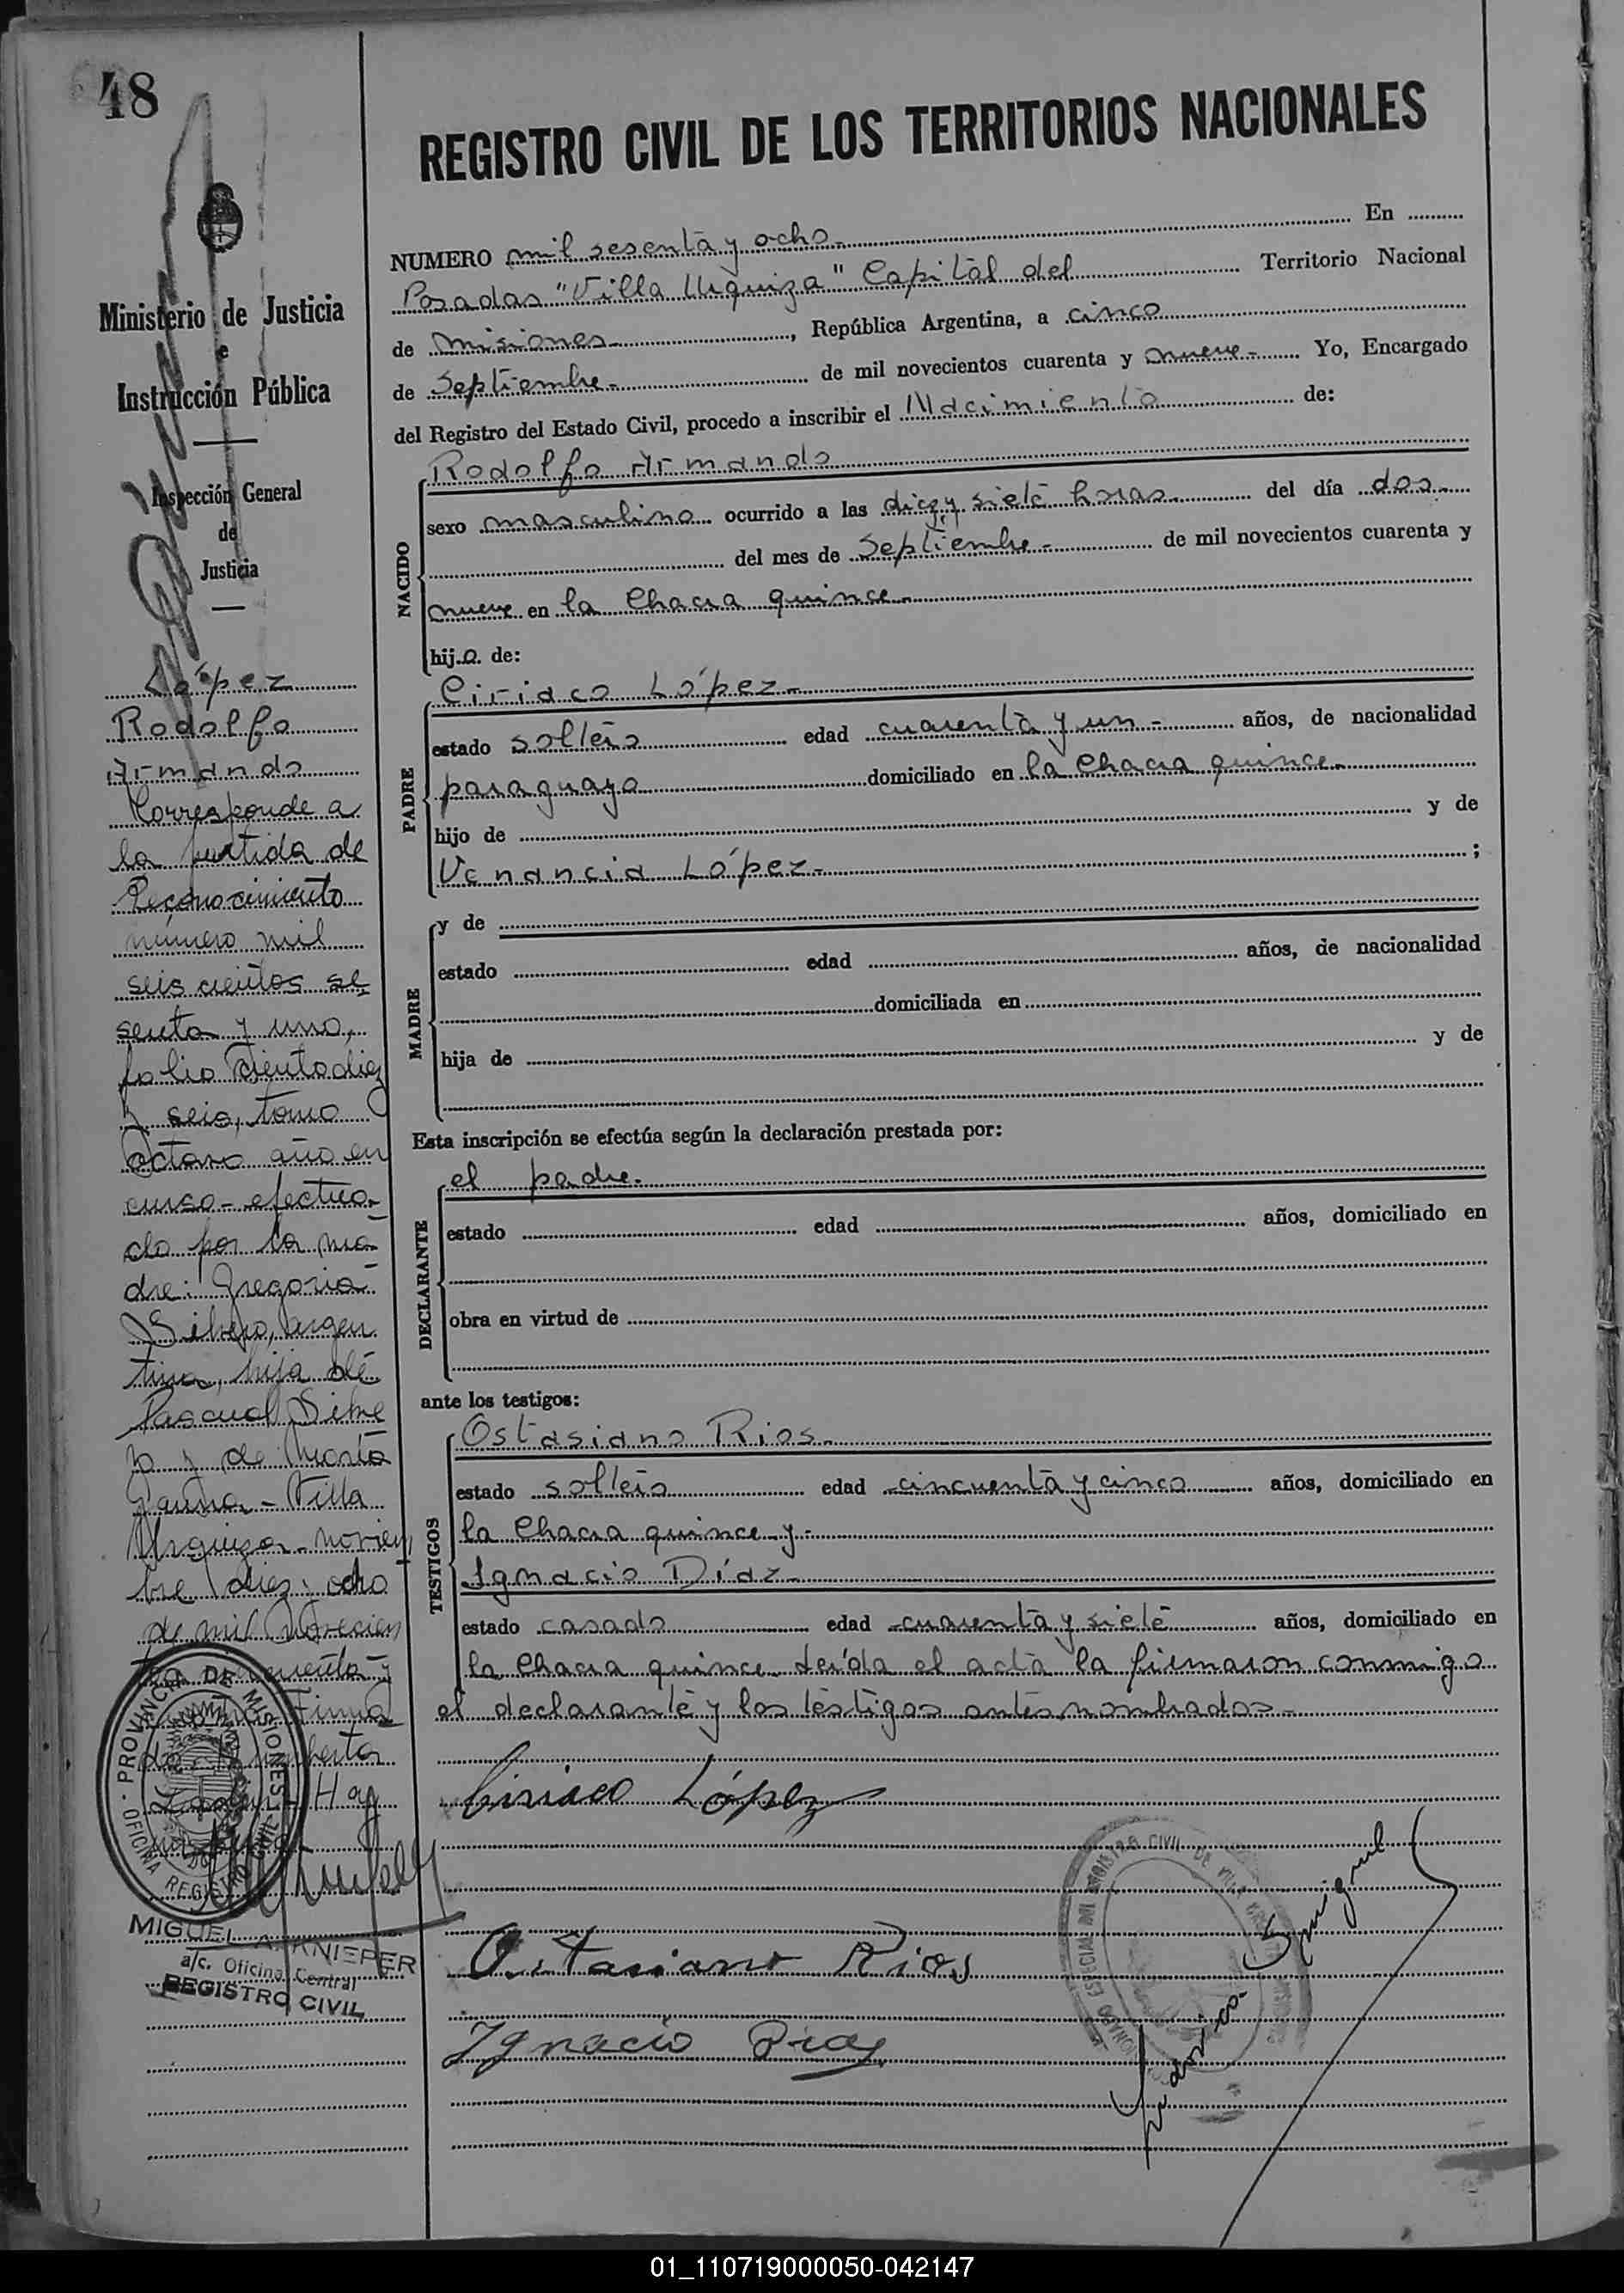 48
Ministerio de Justicia
e
Instrucción Pública
Inspección General
de
Justicia
López
Rodolfo
Armando
Corresponde a
la partida de
Reconocimiento
número mil
seiscientos se
senta y uno,
folio cientodiez
y seis, tomo
octavo año en
curso - efectua
do por la ma
dre: Gregoria
Silvero, argen
tina, hija de
Pascual Silve
ro y de María
Gauna - Villa
Urquiza - noviem
bre diez y ocho
de mil novecien
tos cincuenta y
Firma
do: Humberto
Hay
PROVINCIA DE MISIONES
OFICINA REGISTRO CIVIL
MIGUEL A. KNIEPER
a/c. Oficina Central
REGISTRO CIVIL
REGISTRO CIVIL DE LOS TERRITORIOS NACIONALES
NUMERO mil sesenta y ocho.- En
Posadas "Villa Urquiza" Capital del Territorio Nacional
de Misiones.-, República Argentina, a cinco
de Septiembre.- de mil novecientos cuarenta y nueve.- Yo, Encargado
del Registro del Estado Civil, procedo a inscribir el Nacimiento de:
NACIDO
Rodolfo Armando
sexo masculino ocurrido a las diez y siete horas.- del día dos.-
del mes de Septiembre.- de mil novecientos cuarenta y
nueve en la Chacra quince.-
hijo de:
PADRE
Ciriaco López.-
estado soltero edad cuarenta y un.- años, de nacionalidad
paraguaya domiciliado en la Chacra quince.-
hijo de y de
Venancia López.- ;
MADRE
y de
estado edad años, de nacionalidad
domiciliada en
hija de y de
Esta inscripción se efectúa según la declaración prestada por:
DECLARANTE
el padre.
estado edad años, domiciliado en
obra en virtud de
ante los testigos:
TESTIGOS
Ostasiano Rios.-
estado soltero edad cincuenta y cinco años, domiciliado en
la Chacra quince y.-
Ignacio Díaz.-
estado casado edad cuarenta y siete años, domiciliado en
la Chacra quince. Leída el acta la firmaron conmigo
el declarante y los testigos antes nombrados.-
Ciriaco López
Ostasiano Rios
Ignacio Diaz
01_110719000050-042147